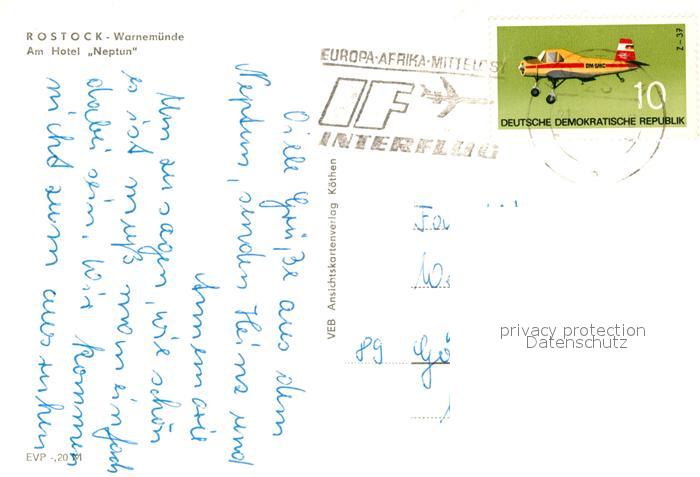 ROSTOCK - Warnemünde
Am Hotel „Neptun"
EUROPA·AFRIKA·MITTELOST
IF
INTERFLUG
Z-37
DM-SMC
10
DEUTSCHE DEMOKRATISCHE REPUBLIK
Viele Grüße aus dem
Neptun, senden Heinz und
Annemarie
Um zu sagen, wie schön
es ist muß man einfach
dabei sein. Wir kommen
nicht zum ausruhen
VEB Ansichtskartenverlag Köthen
89 Gö
privacy protection
Datenschutz
EVP -,20 M